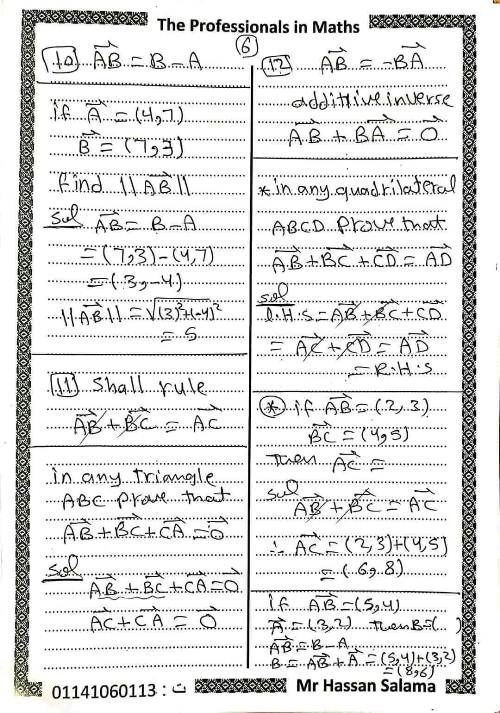 The Professionals in Maths
6
10 AB = B - A
if A = (4,7)
B = (7,3)
find ||AB||
Sol AB = B - A
= (7,3) - (4,7)
= (3,-4)
||AB|| = √(3)²+(-4)²
= 5
11 Shall rule
AB + BC = AC
in any triangle
ABC Prove that
AB + BC + CA = 0
Sol
AB + BC + CA = 0
AC + CA = 0
12 AB = -BA
additive inverse
AB + BA = 0
* in any quadrilateral
ABCD Prove that
AB + BC + CD = AD
Sol
L.H.S = AB + BC + CD
= AC + CD = AD
= R.H.S
* if AB = (2,3)
BC = (4,5)
then AC =
Sol
AB + BC = AC
∴ AC = (2,3) + (4,5)
= (6,8)
if AB = (5,4)
A = (3,2) then B = ( )
AB = B - A
B = AB + A = (5,4) + (3,2)
= (8,6)
01141060113 : ت
Mr Hassan Salama